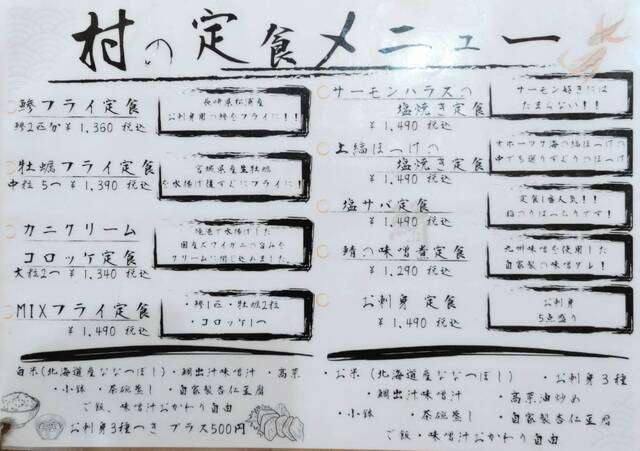 村の定食メニュー
鯵フライ定食
鯵2匹分 ¥1,360 税込
長崎県松浦産
お刺身用の鯵をフライに!!
牡蠣フライ定食
中粒 5つ ¥1,390 税込
宮城県産生牡蠣
を水揚げ後すぐにフライに!!
カニクリーム
コロッケ定食
大粒2つ ¥1,340 税込
境港で水揚げした
国産ズワイガニの旨みを
クリームに閉じ込めました。
MIXフライ定食
¥1,490 税込
・鯵1匹・牡蠣2粒
・コロッケ1つ
白米(北海道産ななつぼし)・鯛出汁味噌汁・高菜
・小鉢・茶碗蒸し・自家製杏仁豆腐
ご飯、味噌汁おかわり自由
お刺身3種つき プラス500円
サーモンハラスの
塩焼き定食
¥1,490 税込
サーモン好きには
たまらない!!
上縞ほっけの
塩焼き定食
¥1,490 税込
オホーツク海の縞ほっけの
中でも選りすぐりのほっけ
塩サバ定食
¥1,490 税込
定食1番人気!!
脂のりばっちりです!
鯖の味噌煮定食
¥1,290 税込
九州味噌を使用した
自家製の味噌ダレ!
お刺身 定食
¥1,490 税込
お刺身
5点盛り
・お米(北海道産ななつぼし) ・お刺身3種
・鯛出汁味噌汁 ・高菜油炒め
・小鉢 ・茶碗蒸し ・自家製杏仁豆腐
・ご飯・味噌汁おかわり自由